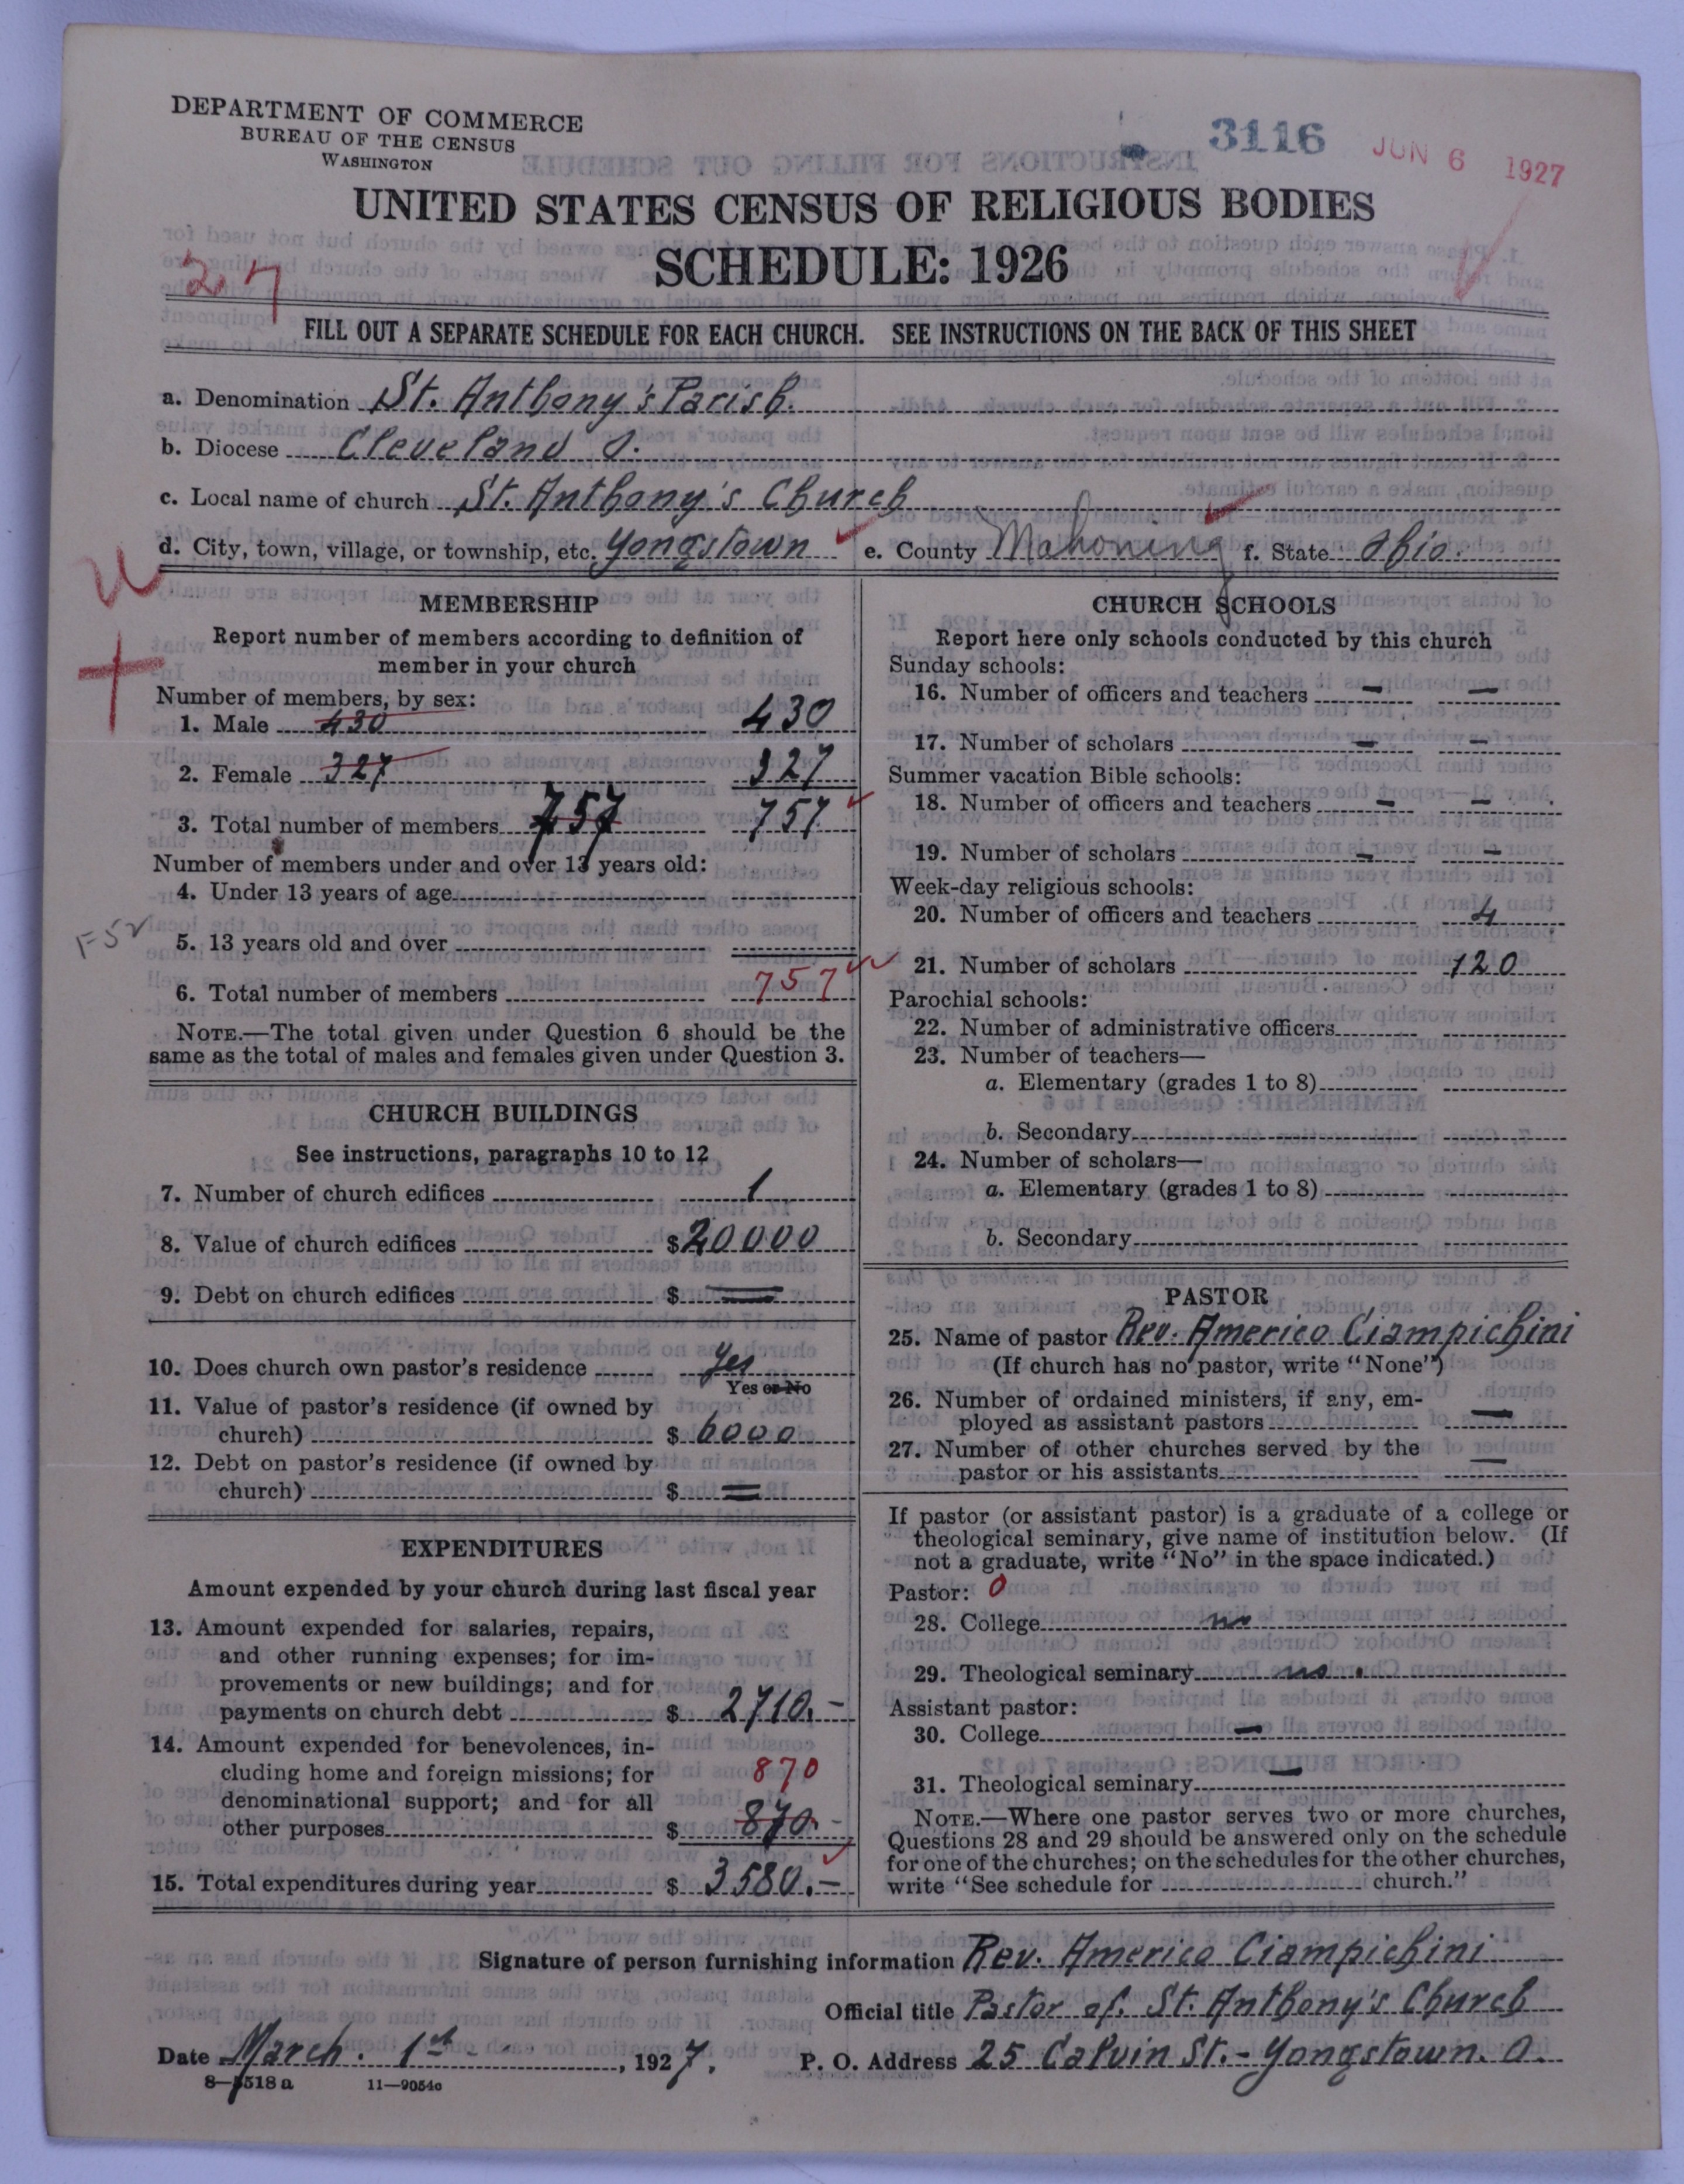 DEPARTMENT OF COMMERCE
BUREAU OF THE CENSUS
WASHINGTON
3116
JUN 6 1927
UNITED STATES CENSUS OF RELIGIOUS BODIES
SCHEDULE: 1926
27
FILL OUT A SEPARATE SCHEDULE FOR EACH CHURCH. SEE INSTRUCTIONS ON THE BACK OF THIS SHEET
a. Denomination St. Anthony's Parish.
b. Diocese Cleveland O.
c. Local name of church St. Anthony's Church
d. City, town, village, or township, etc. Yongstown e. County Mahoning f. State Ohio.
MEMBERSHIP
Report number of members according to definition of
member in your church
Number of members, by sex:
1. Male 430 430
2. Female 327 327
3. Total number of members 757 757
Number of members under and over 13 years old:
4. Under 13 years of age
F52
5. 13 years old and over
6. Total number of members 757
NOTE.—The total given under Question 6 should be the
same as the total of males and females given under Question 3.
CHURCH BUILDINGS
See instructions, paragraphs 10 to 12
7. Number of church edifices 1
8. Value of church edifices $20000
9. Debt on church edifices $ =
10. Does church own pastor's residence Yes
Yes or No
11. Value of pastor's residence (if owned by
church) $ 6000
12. Debt on pastor's residence (if owned by
church) $ =
EXPENDITURES
Amount expended by your church during last fiscal year
13. Amount expended for salaries, repairs,
and other running expenses; for im-
provements or new buildings; and for
payments on church debt $ 2710.-
14. Amount expended for benevolences, in-
cluding home and foreign missions; for 870
denominational support; and for all
other purposes $ 870.-
15. Total expenditures during year $ 3580.-
CHURCH SCHOOLS
Report here only schools conducted by this church
Sunday schools:
16. Number of officers and teachers - -
17. Number of scholars - -
Summer vacation Bible schools:
18. Number of officers and teachers - -
19. Number of scholars - -
Week-day religious schools:
20. Number of officers and teachers 4
21. Number of scholars 120
Parochial schools:
22. Number of administrative officers
23. Number of teachers—
a. Elementary (grades 1 to 8)
b. Secondary
24. Number of scholars—
a. Elementary (grades 1 to 8)
b. Secondary
PASTOR
25. Name of pastor Rev. Americo Ciampichini
(If church has no pastor, write "None")
26. Number of ordained ministers, if any, em-
ployed as assistant pastors —
27. Number of other churches served by the
pastor or his assistants —
If pastor (or assistant pastor) is a graduate of a college or
theological seminary, give name of institution below. (If
not a graduate, write "No" in the space indicated.)
Pastor: 0
28. College no
29. Theological seminary no.
Assistant pastor:
30. College —
31. Theological seminary —
NOTE.—Where one pastor serves two or more churches,
Questions 28 and 29 should be answered only on the schedule
for one of the churches; on the schedules for the other churches,
write "See schedule for church."
Signature of person furnishing information Rev. Americo Ciampichini
Official title Pastor of. St. Anthony's Church
Date March. 1st, 1927. P. O. Address 25 Calvin St.- Yongstown. O.
8—5518 a 11—9054c